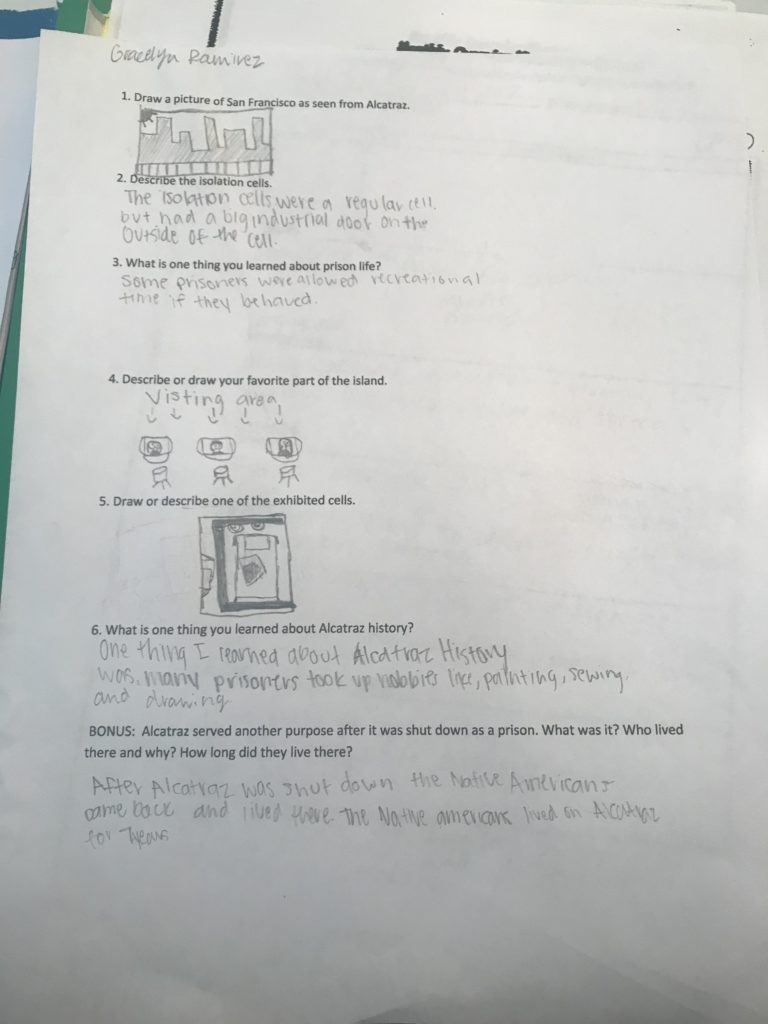 Gracelyn Ramirez
1. Draw a picture of San Francisco as seen from Alcatraz.
2. Describe the isolation cells.
The isolation cells were a regular cell.
but had a big industrial door on the
Outside of the cell.
3. What is one thing you learned about prison life?
Some prisoners were allowed recreational
time if they behaved.
4. Describe or draw your favorite part of the island.
Visting area
5. Draw or describe one of the exhibited cells.
6. What is one thing you learned about Alcatraz history?
One thing I learned about Alcatraz History
was, many prisoners took up hobbies like, painting, sewing,
and drawing
BONUS: Alcatraz served another purpose after it was shut down as a prison. What was it? Who lived
there and why? How long did they live there?
After Alcatraz was shut down the Native Americans
came back and lived there. The Native americans lived on Alcatraz
for